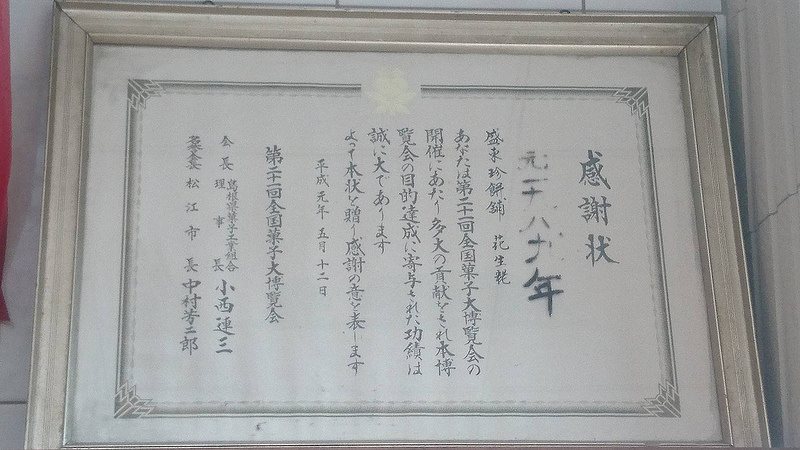 感謝状
年
盛東珍餅舖 花生粩
あなたは第二十一回全国菓子大博覧会の
開催にあたり多大の貢献をされ本博
覧会の目的達成に寄与された功績は
誠に大であります
よって本状を贈り感謝の意を表します
平成元年五月十二日
第二十一回全国菓子大博覧会
会長 島根県菓子工業組合
理事長 小西運三
名誉会長 松江市長 中村芳二郎